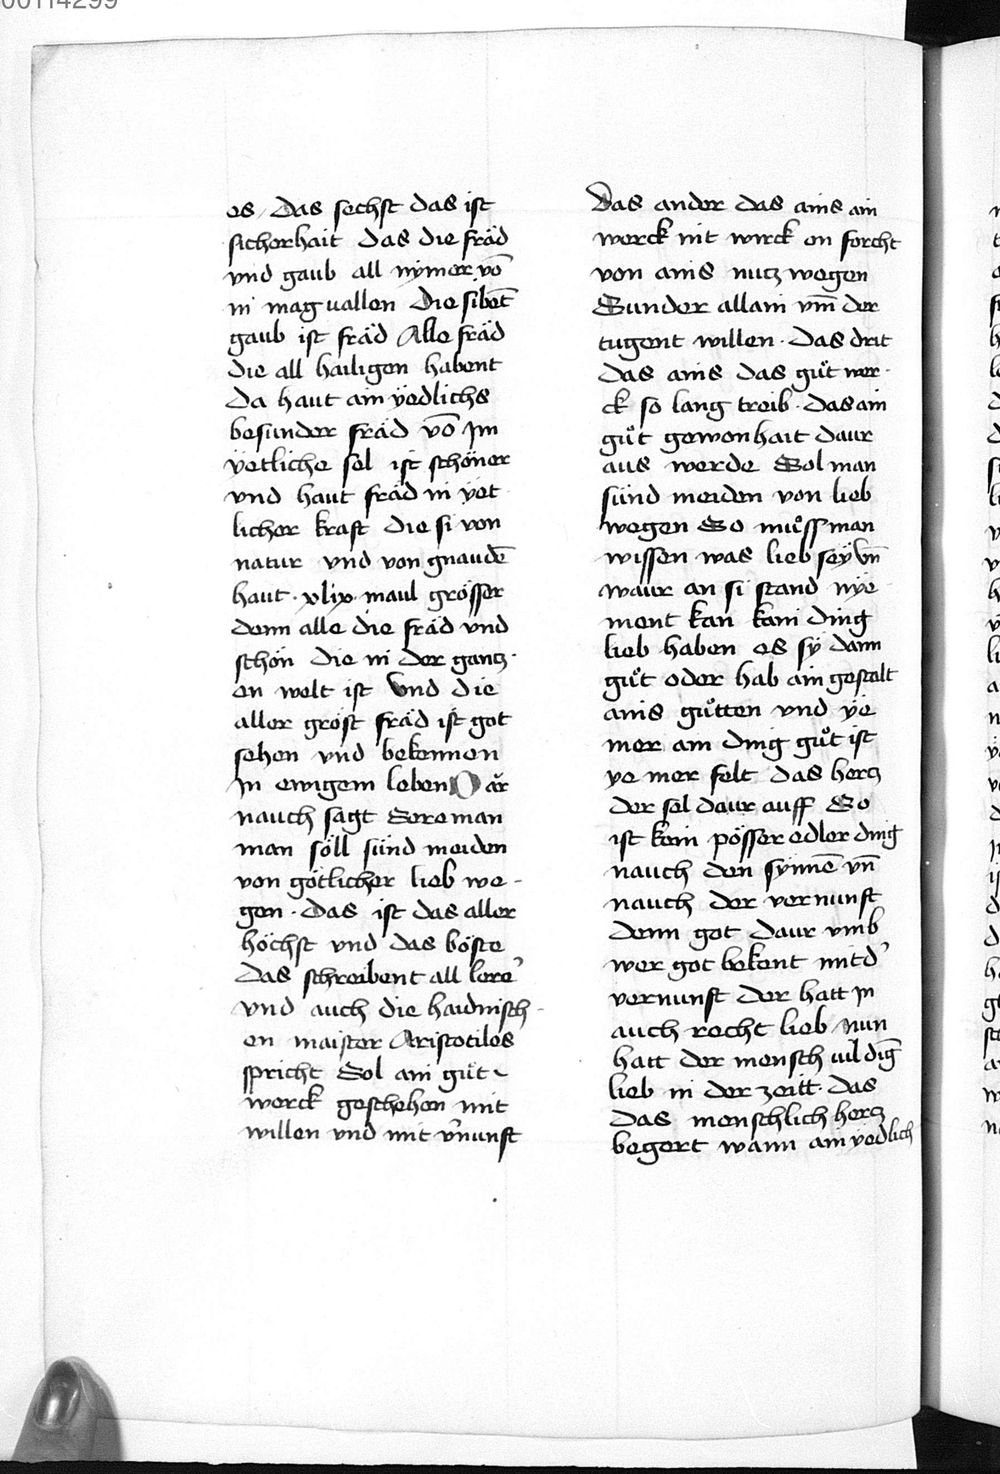 00114299
es / Das sechst das ist
sicherhait das die fräd
vnd gaub all nymer vō
in mag uallen Die sibēt
gaub ist fräd Alle fräd
die all hailigen habent
Da haut ain ÿedlichs
besunder fräd vō jm
ÿetliche sel ist schöner
vnd haut fräd in ÿet
licher kraft die si von
natur vnd von gnaudē
haut · xlix · maul grösser
denn alle die fräd vnd
schön die in der gantz ·
en welt ist vnd die
aller gröst fräd ist got
sehen vnd bekennen
jn ewigem leben Dar
nauch sagt Sere man
man söll sünd meiden
von götlicher lieb we -
gen · Das ist das aller
höchst vnd das böste
das schreibent all lere
vnd auch die haidnisch -
en maister Aristotiles
spricht Sol ain gůt
werck geschehen mit
willen vnd mit v̄nunst
Das ander das ains ain
werck nit wirck on forcht
von ains nutz wegen
Sunder allain vm̄ der
tugent willen · Das drit
das ains das gůt wer ·
ck so lang treib · das ain
gůt gewonhait daur
aus werde Sol man
sünd meiden von lieb
wegen So můss man
wissen was lieb seÿ vn̄
waur an si stand nÿe
ment kan kain ding
lieb haben es sÿ dann
gůt oder hab ain gestalt
ains gůtten vnd ÿe
mer ain ding gůt ist
ye mer felt das hertz
der sel daur auff So
ist kein pösser edler ding
nauch den synnē vn̄
nauch der vernunst
denn got daur vmb
wer got bekent mit d'
vernunst der hatt jn
auch recht lieb Nun
hatt der mensch uil dīg
lieb in der zeitt · das
das menschlich hertz
begert wann ain ÿedlich